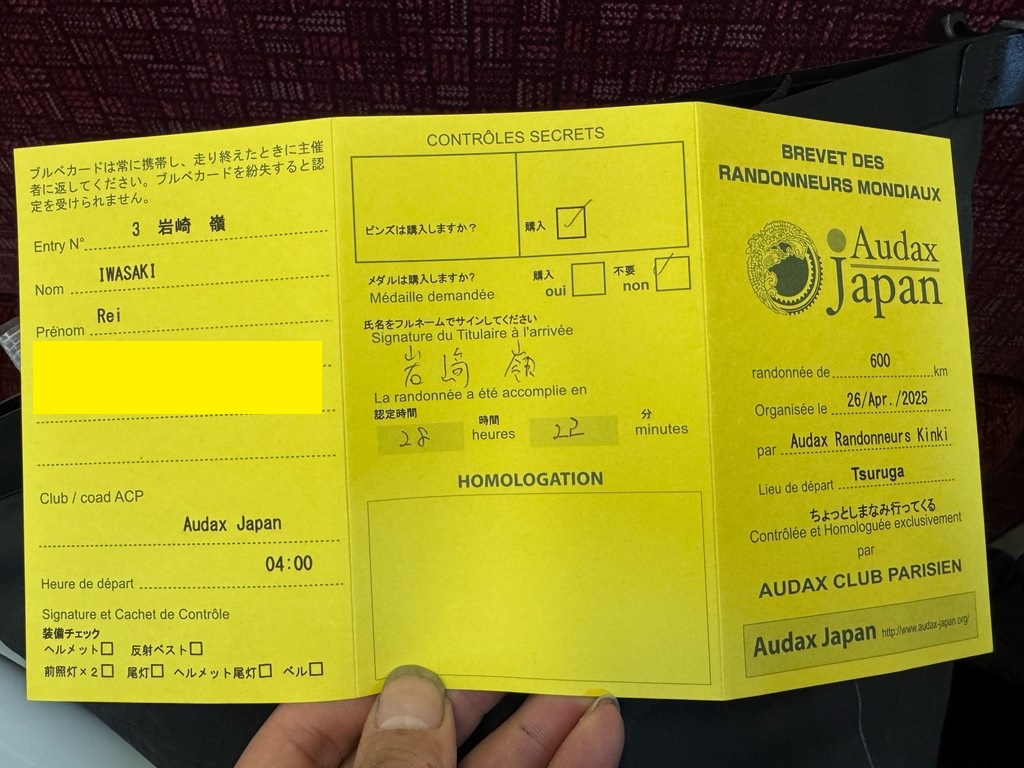 ブルベカードは常に携帯し、走り終えたときに主催
者に返してください。ブルベカードを紛失すると認
定を受けられません。
Entry N° 3 岩崎 嶺
Nom IWASAKI
Prénom Rei
Club / coad ACP
Audax Japan
Heure de départ 04:00
Signature et Cachet de Contrôle
装備チェック
ヘルメット□ 反射ベスト□
前照灯×2□ 尾灯□ ヘルメット尾灯□ ベル□
CONTRÔLES SECRETS
ピンズは購入しますか? 購入
メダルは購入しますか? 購入 不要
Médaille demandée oui non
氏名をフルネームでサインしてください
Signature du Titulaire à l'arrivée
岩崎 嶺
La randonnée a été accomplie en
認定時間 時間 分
28 heures 22 minutes
HOMOLOGATION
BREVET DES
RANDONNEURS MONDIAUX
Audax
Japan
randonnée de 600 km
Organisée le 26/Apr./2025
par Audax Randonneurs Kinki
Lieu de départ Tsuruga
ちょっとしまなみ行ってくる
Contrôlée et Homologuée exclusivement
par
AUDAX CLUB PARISIEN
Audax Japan http://www.audax-japan.org/